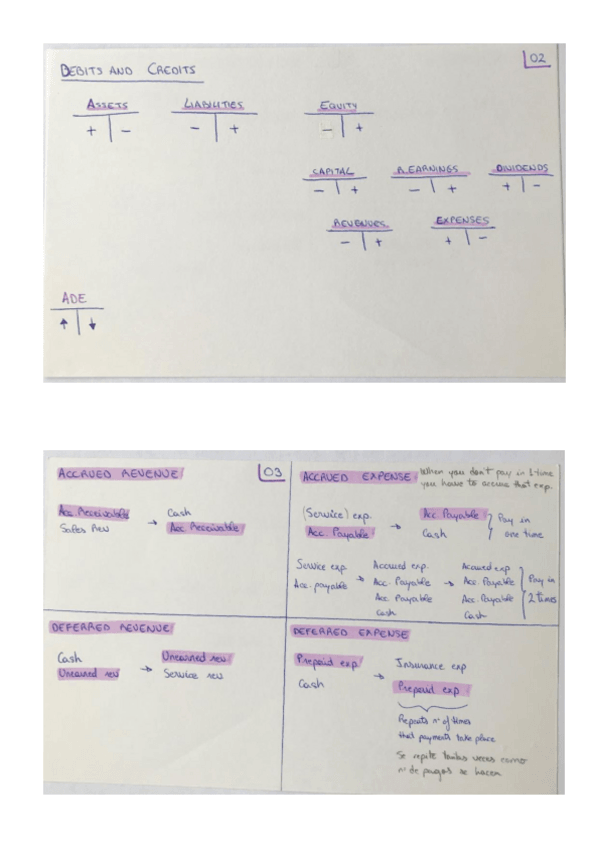 DEBITS AND CREDITS
02
ASSETS LIABILITIES EQUITY
+ - - + - +
CAPITAL R.EARNINGS DIVIDENDS
- + - + + -
REVENUES EXPENSES
- + + -
ADE
↑ ↓
ACCRUED REVENUE
03
Acc Receivable Cash
Sales Rev → Acc Receivable
ACCRUED EXPENSE When you don't pay in 1 time
you have to accrue that exp.
(Service) exp. → Acc Payable Pay in
Acc. Payable Cash one time
Service exp. → Accrued exp. → Accrued exp Pay in
Acc. payable Acc. Payable Acc. Payable 2 times
Acc Payable Acc. Payable
Cash Cash
DEFERRED REVENUE
Cash → Unearned rev
Unearned rev Service rev
DEFERRED EXPENSE
Prepaid exp → Insurance exp
Cash Prepaid exp
Repeats nº of times
that payments take place
Se repite tantas veces como
nº de pagos se hacen